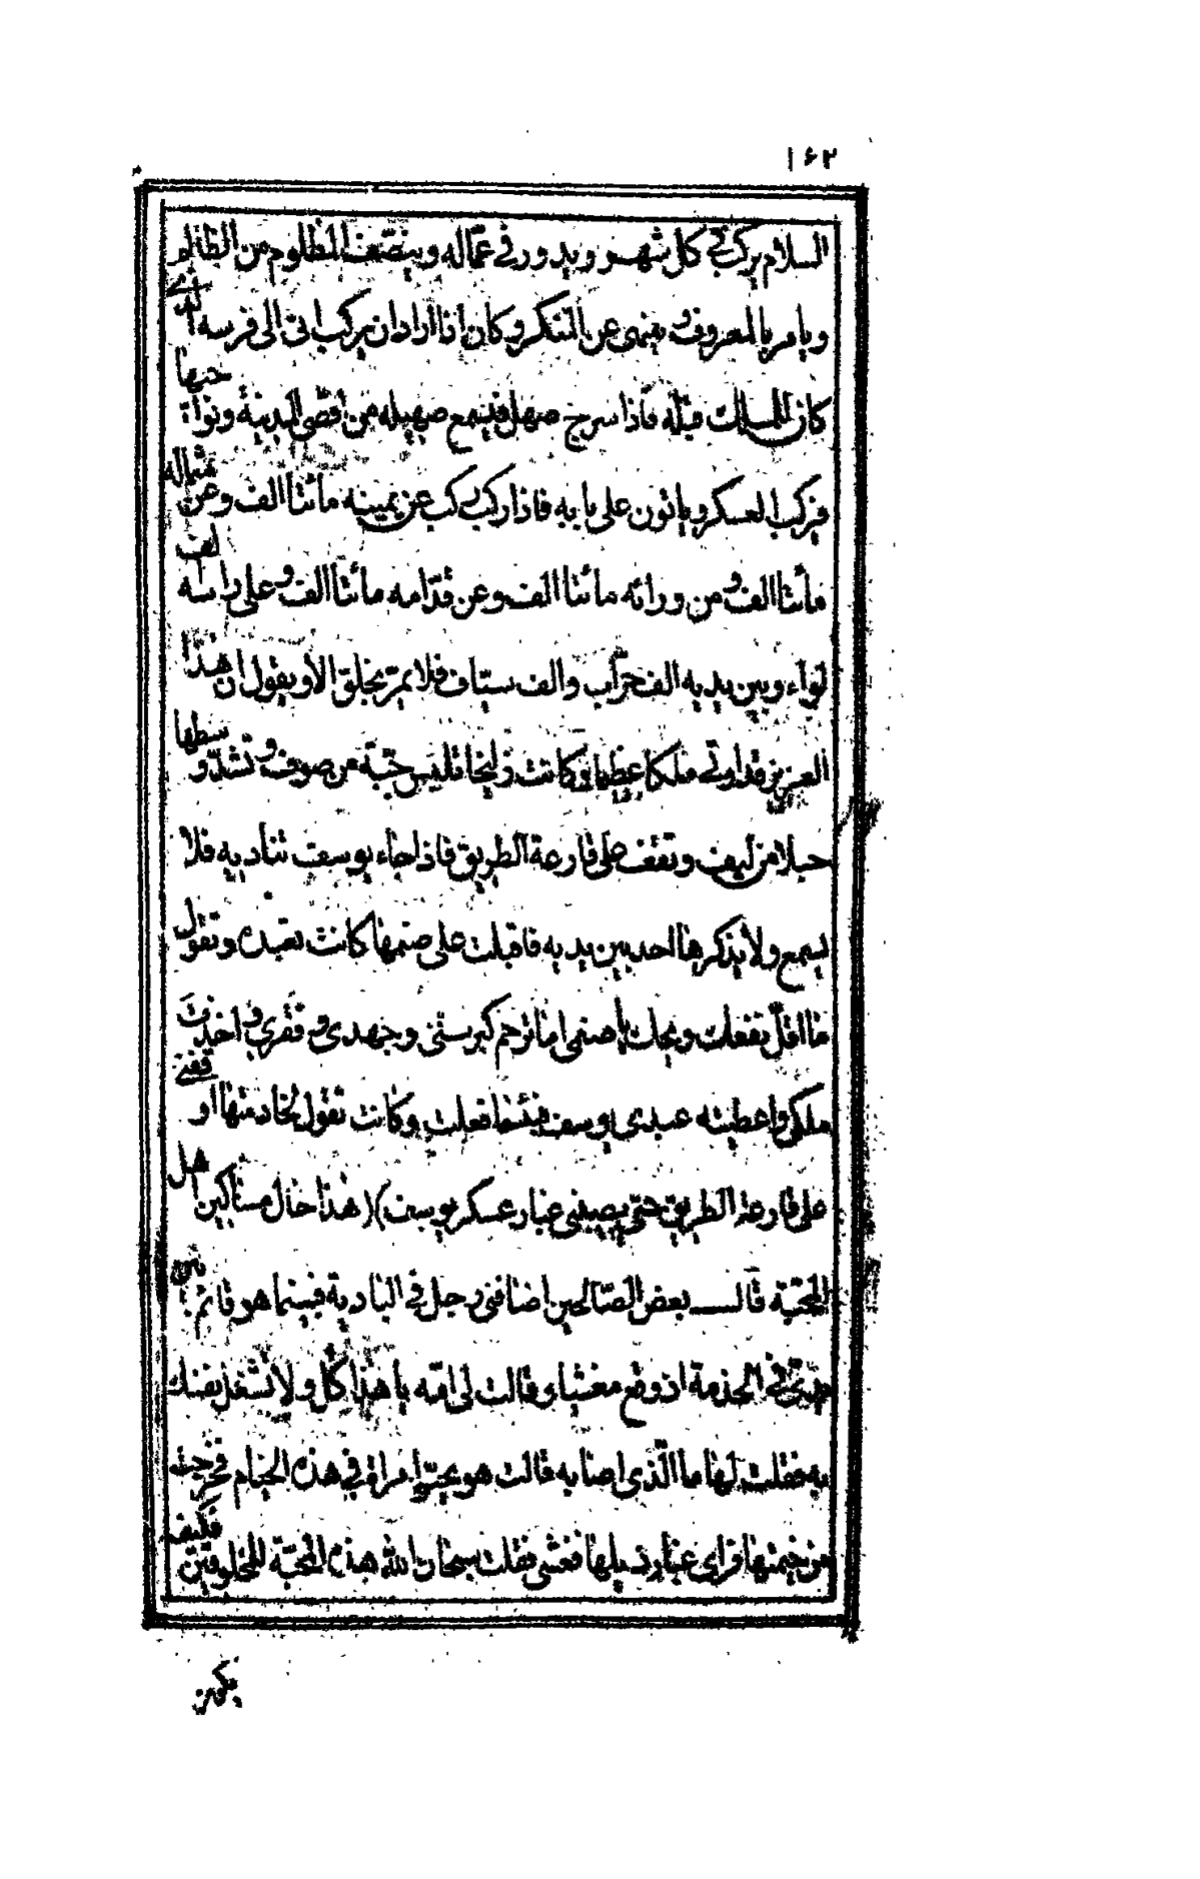 ١٦٢
السلام يركب في كل شهر ويدور في عمّاله وينتصف المظلوم من الظالم
ويأمر بالمعروف وينهى عن المنكر وكان اذا اراد ان يركب اتى الى فرسه الذي
كان للملك قبله فاذا سرج صهل فيسمع صهيله من اقصى المدينة ونواحيها
فيركب العسكر ويأتون على بابه فاذا ركب ركب عن يمينه مائتا الف وعن شماله
مائتا الف ومن ورائه مائتا الف وعن قدّامه مائتا الف وعلى رأسه الف
لواء وبين يديه الف حرّاب والف سيّاف فلا يمرّ بخلق الا ويقول ان هذا
العزيز قد اوتي ملكا عظيما وكانت زليخا تلبس جبّة من صوف وتشدّ وسطها
حبلا من ليف وتقف على قارعة الطريق فاذا جاء يوسف تناديه فلا
يسمع ولا يذكرها احد بين يديه فاقبلت على صنمها كانت تعبده وتقول
ما اقلّ نفعك ويحك يا صنمي اما ترحم كبر سنّي وجهدي وفقري واخذت
ملكي واعطيته عبدي يوسف فبئسما فعلت وكانت تقول لخادمتها اوقفني
على قارعة الطريق حتّى يصيبني غبار عسكر يوسف) (هذا حال مساكين اهل
المحبّة قال بعض الصّالحين اضافني رجل في البادية فبينما هو قائم بين
يديّ في الخدمة اذ وقع مغشيا وقالت لي امّه يا هذا كل ولا تشغل نفسك
به فقلت لها ما الّذي اصابه قالت هو يحبّ امراة في هذه الخيام فخرجت
من خيمتها فراى غبار ذيلها فغشي فقلت سبحان الله هذه المحبّة للمخلوقين فكيف
يكون